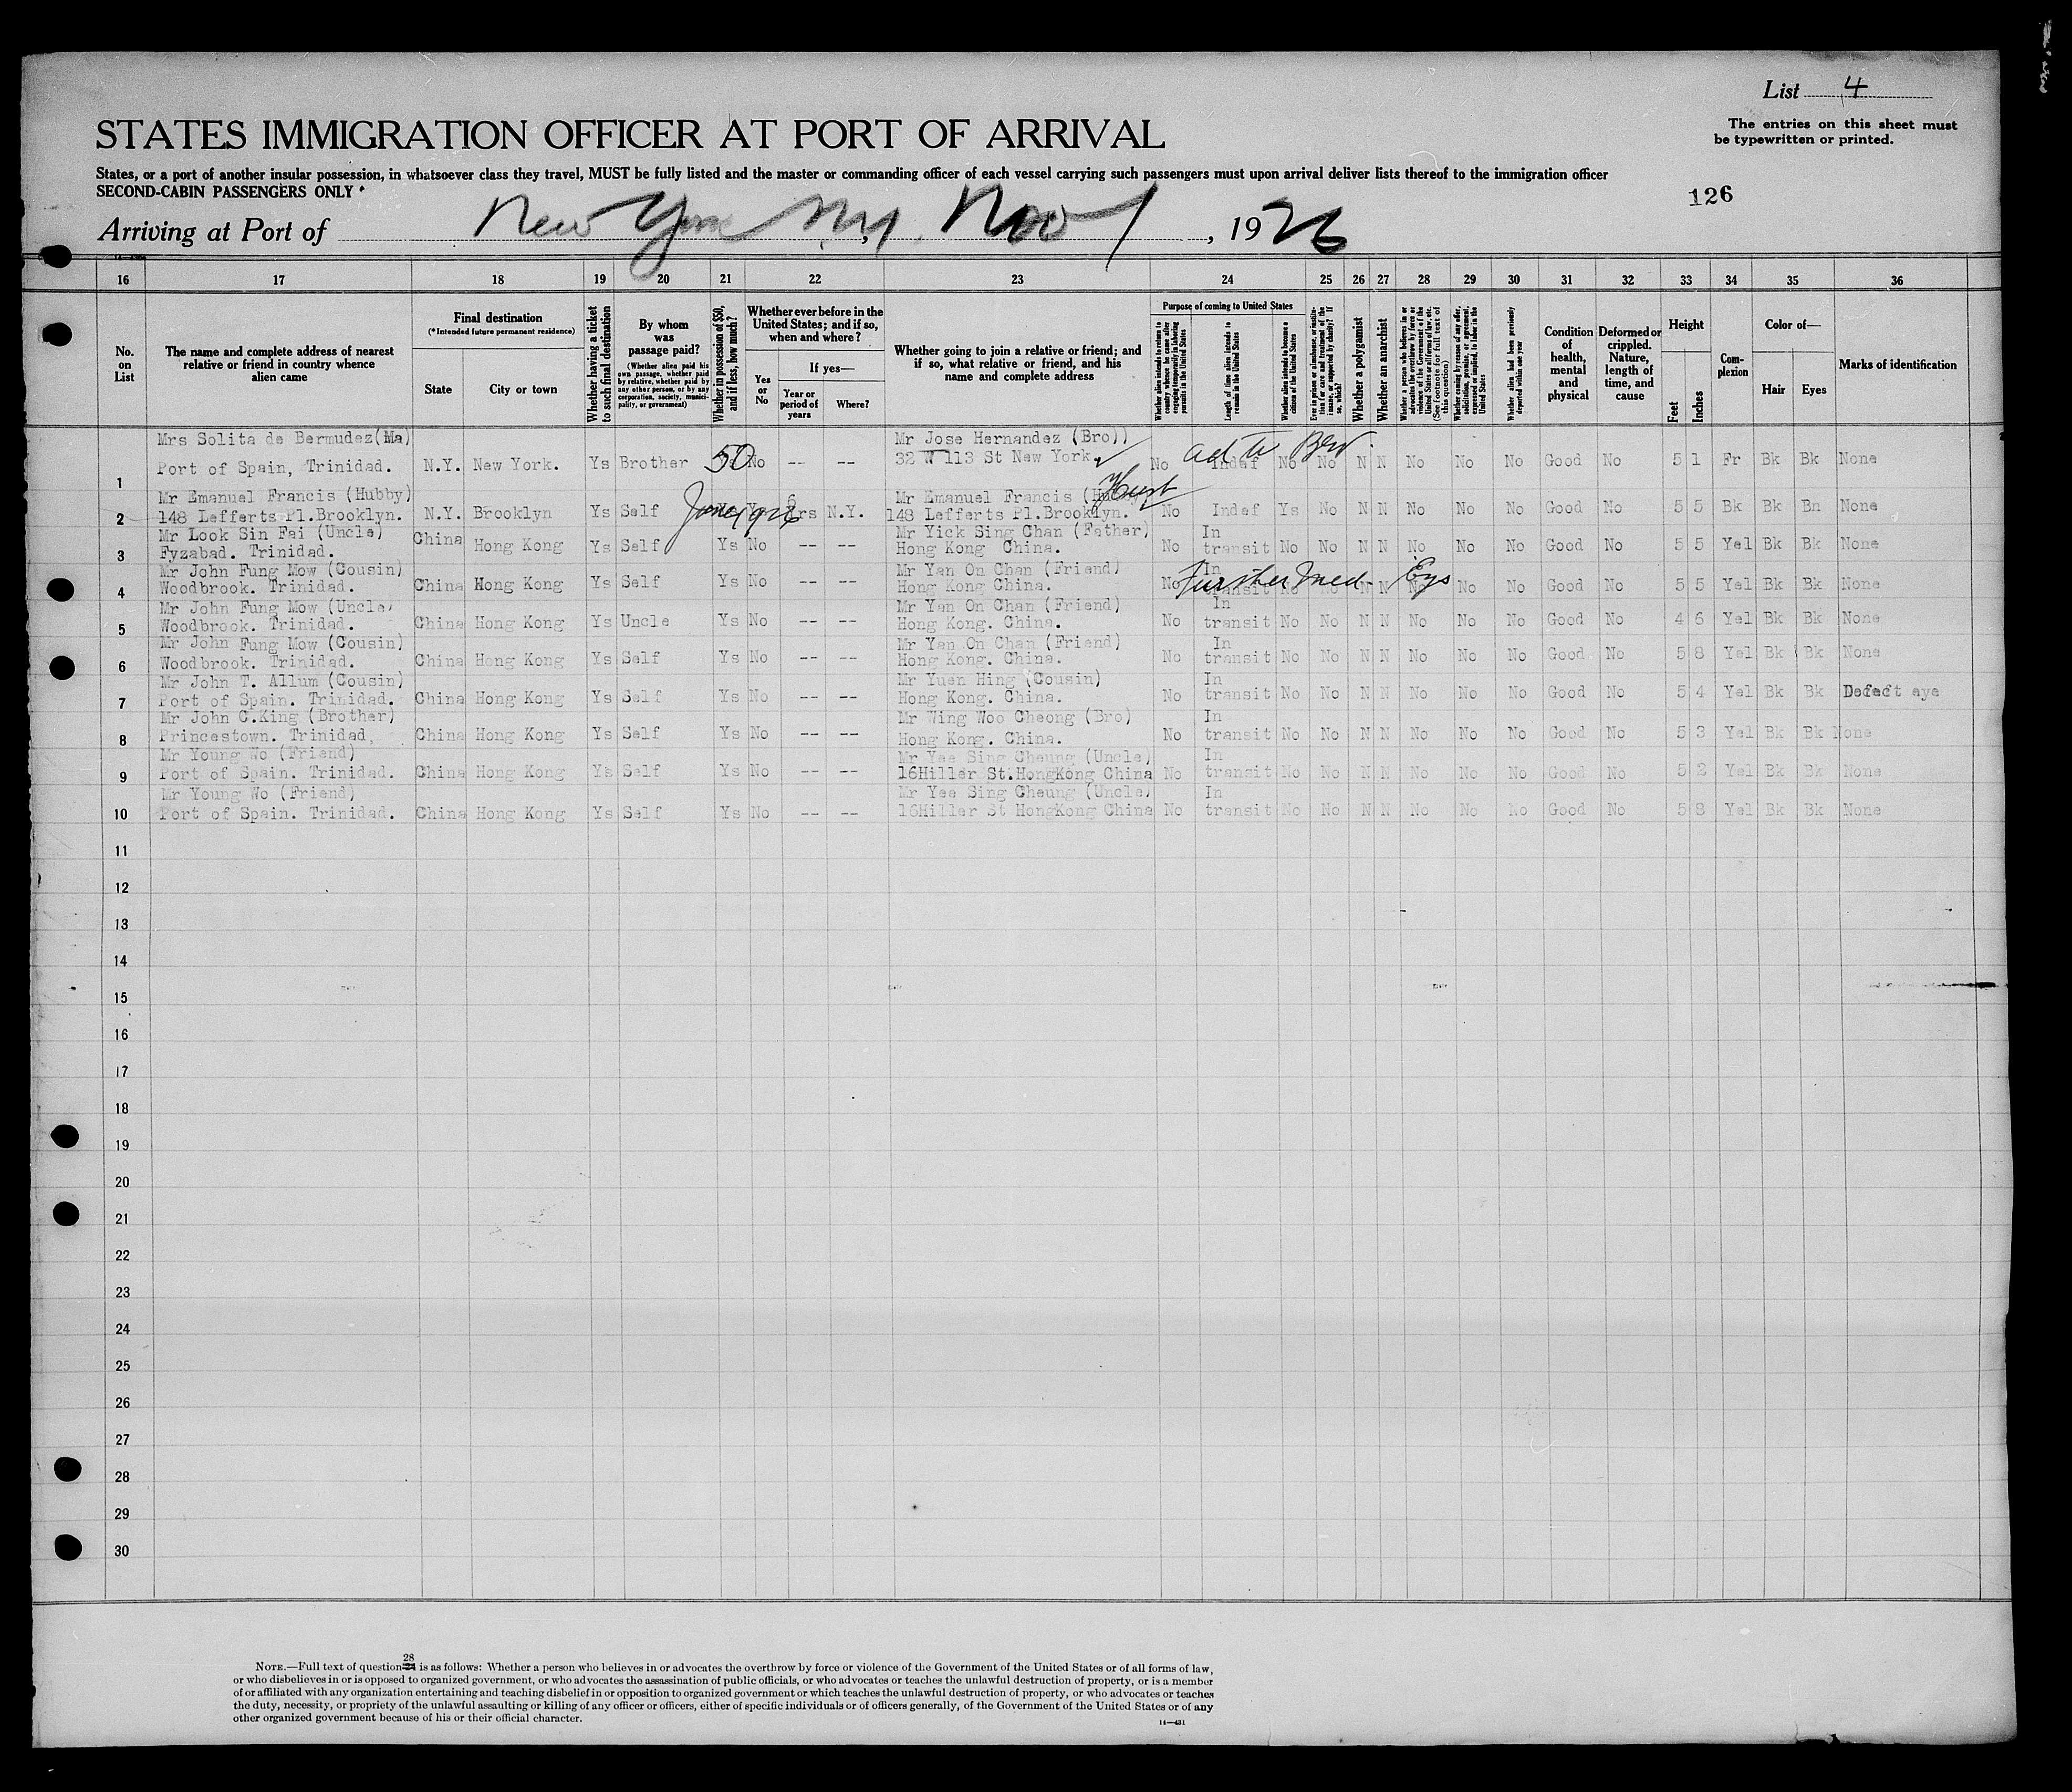 List 4
The entries on this sheet must
be typewritten or printed.
STATES IMMIGRATION OFFICER AT PORT OF ARRIVAL
States, or a port of another insular possession, in whatsoever class they travel, MUST be fully listed and the master or commanding officer of each vessel carrying such passengers must upon arrival deliver lists thereof to the immigration officer
SECOND-CABIN PASSENGERS ONLY
126
Arriving at Port of New York N.Y. Nov 1, 1926
16 17 18 19 20 21 22 23 24 25 26 27 28 29 30 31 32 33 34 35 36
No. on List
The name and complete address of nearest relative or friend in country whence alien came
Final destination
(*Intended future permanent residence)
State
City or town
Whether having a ticket to such final destination
By whom was passage paid?
(Whether alien paid his own passage, whether paid by relative, whether paid by any other person, or by any corporation, society, municipality, or government)
Whether in possession of $50, and if less, how much?
Whether ever before in the United States; and if so, when and where?
Yes or No
If yes—
Year or period of years
Where?
Whether going to join a relative or friend; and if so, what relative or friend, and his name and complete address
Purpose of coming to United States
Whether alien intends to return to country whence he came after engaging temporarily in laboring pursuits in the United States
Length of time alien intends to remain in the United States
Whether alien intends to become a citizen of the United States
Ever in prison or almshouse, or institution for care and treatment of the insane, or supported by charity? If so, which?
Whether a polygamist
Whether an anarchist
Whether a person who believes in or advocates the overthrow by force or violence of the Government of the United States or all forms of law, etc. (See footnote for full text of this question)
Whether coming by reason of any offer, solicitation, promise, or agreement, expressed or implied, to labor in the United States
Whether alien had been previously deported within one year
Condition of health, mental and physical
Deformed or crippled. Nature, length of time, and cause
Height
Feet
Inches
Complexion
Color of—
Hair
Eyes
Marks of identification
Mrs Solita de Bermudez(Ma) Mr Jose Hernandez (Bro))
1 Port of Spain, Trinidad. N.Y. New York. Ys Brother 50 No -- -- 32 W 113 St New York. No Indef No No N N No No No Good No 5 1 Fr Bk Bk None
Mr Emanuel Francis (Hubby) Mr Emanuel Francis Hust
2 148 Lefferts Pl.Brooklyn. N.Y. Brooklyn Ys Self June 1926 6 rs N.Y. 148 Lefferts Pl.Brooklyn. No Indef Ys No N N No No No Good No 5 5 Bk Bk Bn None
Mr Look Sin Fai (Uncle) Mr Yick Sing Chan (Father) In
3 Fyzabad. Trinidad. China Hong Kong Ys Self Ys No -- -- Hong Kong China. No transit No No N N No No No Good No 5 5 Yel Bk Bk None
Mr John Fung Mow (Cousin) Mr Yan On Chan (Friend) In
4 Woodbrook. Trinidad. China Hong Kong Ys Self Ys No -- -- Hong Kong China. No transit No No N N No No No Good No 5 5 Yel Bk Bk None
Further Med. Eys
Mr John Fung Mow (Uncle) Mr Yan On Chan (Friend) In
5 Woodbrook. Trinidad. China Hong Kong Ys Uncle Ys No -- -- Hong Kong. China. No transit No No N N No No No Good No 4 6 Yel Bk Bk None
Mr John Fung Mow (Cousin) Mr Yan On Chan (Friend) In
6 Woodbrook. Trinidad. China Hong Kong Ys Self Ys No -- -- Hong Kong. China. No transit No No N N No No No Good No 5 8 Yel Bk Bk None
Mr John T. Allum (Cousin) Mr Yuen Hing (Cousin) In
7 Port of Spain. Trinidad. China Hong Kong Ys Self Ys No -- -- Hong Kong. China. No transit No No N N No No No Good No 5 4 Yel Bk Bk Defect eye
Mr John C.King (Brother) Mr Wing Woo Cheong (Bro) In
8 Princestown. Trinidad, China Hong Kong Ys Self Ys No -- -- Hong Kong. China. No transit No No N N No No No Good No 5 3 Yel Bk Bk None
Mr Young Wo (Friend) Mr Yee Sing Cheung (Uncle) In
9 Port of Spain. Trinidad. China Hong Kong Ys Self Ys No -- -- 16Hiller St.HongKong China No transit No No N N No No No Good No 5 2 Yel Bk Bk None
Mr Young Wo (Friend) Mr Yee Sing Cheung (Uncle) In
10 Port of Spain. Trinidad. China Hong Kong Ys Self Ys No -- -- 16Hiller St HongKong China No transit No No N N No No No Good No 5 8 Yel Bk Bk None
11
12
13
14
15
16
17
18
19
20
21
22
23
24
25
26
27
28
29
30
NOTE.—Full text of question 28 is as follows: Whether a person who believes in or advocates the overthrow by force or violence of the Government of the United States or of all forms of law,
or who disbelieves in or is opposed to organized government, or who advocates the assassination of public officials, or who advocates or teaches the unlawful destruction of property, or is a member
of or affiliated with any organization entertaining and teaching disbelief in or opposition to organized government or which teaches the unlawful destruction of property, or who advocates or teaches
the duty, necessity, or propriety of the unlawful assaulting or killing of any officer or officers, either of specific individuals or of officers generally, of the Government of the United States or of any
other organized government because of his or their official character.
14—431